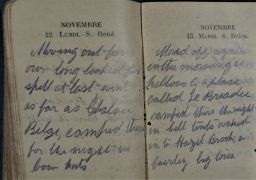 NOVEMBRE
12. LUNDI. S. René.
Moving out for
our long looked for
spell at last - went
as far as
Belge, camped there
for the night in
bow huts
NOVEMBRE
13. MARDI. S. Brice.
Moved off again
in the morning at
to a place
called Le
camped there the night
in bell tents
to Hazel Brook, a
fairly big